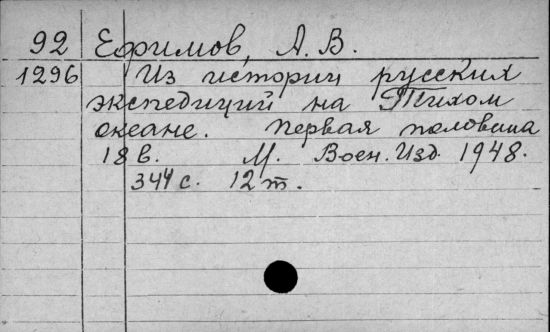 92 Ефимов, А. В.
1296 Из истории русских
экспедиций на Тихом
океане. Первая половина
18 в. М. Воен. Изд. 1948.
344 с. 12 т.